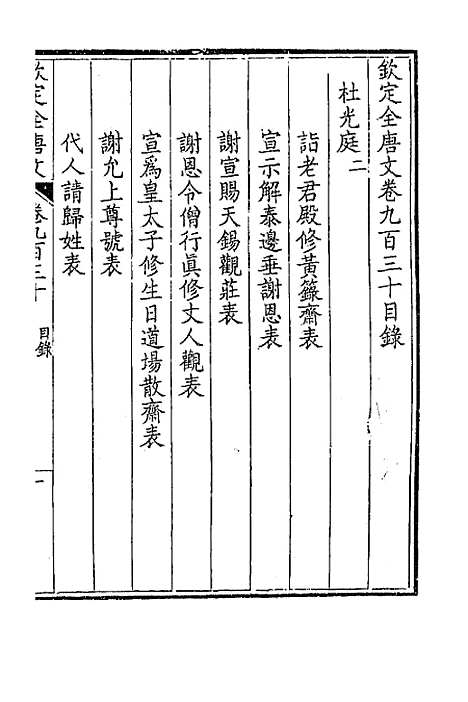 欽定全唐文卷九百三十目錄
杜光庭二
詣老君殿修黃籙齋表
宣示解泰邊垂謝恩表
謝宣賜天錫觀莊表
謝恩令僧行真修丈人觀表
宣爲皇太子修生日道場散齋表
謝允上尊號表
代人請歸姓表
欽定全唐文
卷九百三十
目錄
一